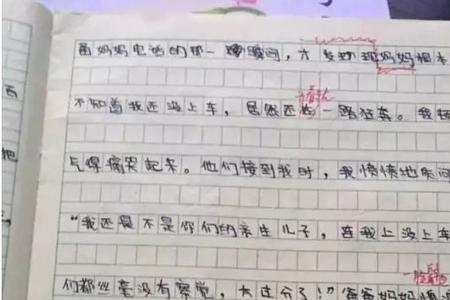 妈妈电话的那一瞬间,才发现 妈妈根本
不知道我还没上车,居然还 一路狂奔。我
气得痛哭起来。他们接到我时,我愤愤地质问
“我还是不是你们的亲生儿子,连我上没上车
们都丝毫没有察觉,太过分了!”爸爸妈妈